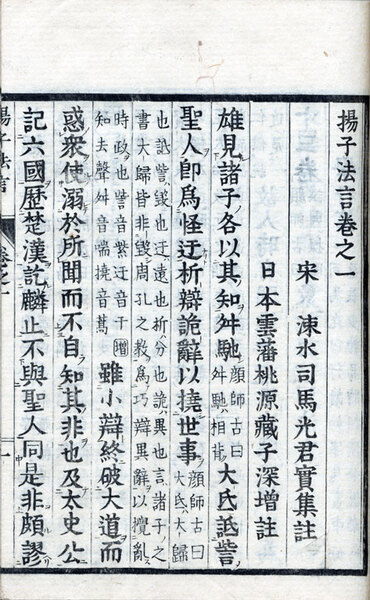 揚子法言卷之一
宋 涑水司馬光君實集註
日本雲藩桃源藏子深增註
雄見諸子各以其知舛馳顏師古曰舛馳相背大氐詆訾
聖人卽爲怪迂析辯詭辭以撓世事顏師古曰大氐大歸
也詆訾毀也迂遠也析分也詭異也言諸子之
書大歸皆非毀周孔之敎爲巧辯異辭以攪亂
時政也訾音紫迂音于增
知去聲舛音喘撓音蒿雖小辯終破大道而
惑衆使溺於所聞而不自知其非也及太史公
記六國歷楚漢訖麟止不與聖人同是非頗謬
揚子法言
卷之一
一